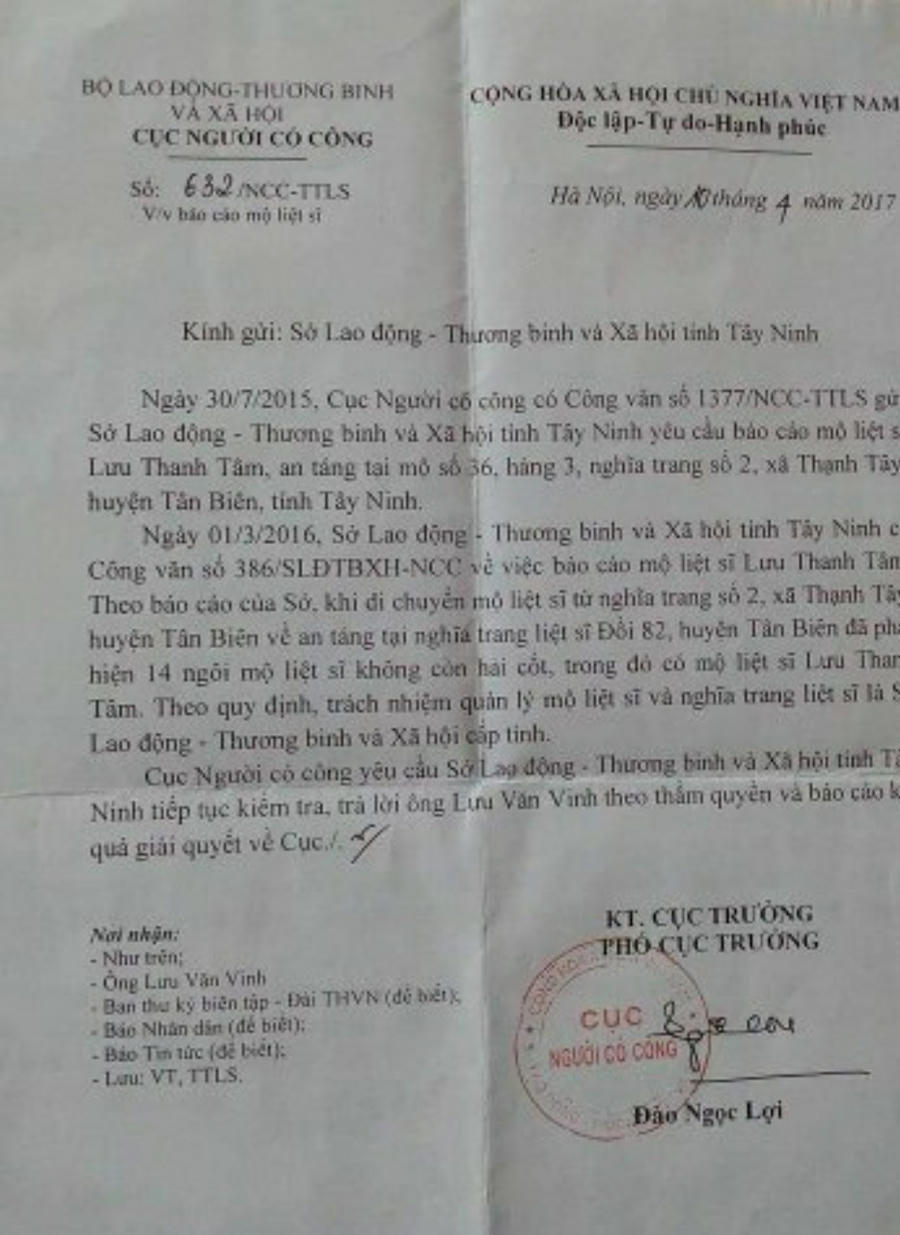 BỘ LAO ĐỘNG-THƯƠNG BINH
VÀ XÃ HỘI
CỤC NGƯỜI CÓ CÔNG
Số: 632/NCC-TTLS
V/v báo cáo mộ liệt sĩ
CỘNG HÒA XÃ HỘI CHỦ NGHĨA VIỆT NAM
Độc lập-Tự do-Hạnh phúc
Hà Nội, ngày 10 tháng 4 năm 2017
Kính gửi: Sở Lao động - Thương binh và Xã hội tỉnh Tây Ninh
Ngày 30/7/2015, Cục Người có công có Công văn số 1377/NCC-TTLS gử
Sở Lao động - Thương binh và Xã hội tỉnh Tây Ninh yêu cầu báo cáo mộ liệt s
Lưu Thanh Tâm, an táng tại mộ số 36, hàng 3, nghĩa trang số 2, xã Thạnh Tây
huyện Tân Biên, tỉnh Tây Ninh.
Ngày 01/3/2016, Sở Lao động - Thương binh và Xã hội tỉnh Tây Ninh c
Công văn số 386/SLĐTBXH-NCC về việc báo cáo mộ liệt sĩ Lưu Thanh Tâm
Theo báo cáo của Sở, khi di chuyển mộ liệt sĩ từ nghĩa trang số 2, xã Thạnh Tây
huyện Tân Biên về an táng tại nghĩa trang liệt sĩ Đồi 82, huyện Tân Biên đã phá
hiện 14 ngôi mộ liệt sĩ không còn hài cốt, trong đó có mộ liệt sĩ Lưu Than
Tâm. Theo quy định, trách nhiệm quản lý mộ liệt sĩ và nghĩa trang liệt sĩ là S
Lao động - Thương binh và Xã hội cấp tỉnh.
Cục Người có công yêu cầu Sở Lao động - Thương binh và Xã hội tỉnh Tâ
Ninh tiếp tục kiểm tra, trả lời ông Lưu Văn Vinh theo thẩm quyền và báo cáo k
quả giải quyết về Cục./.
Nơi nhận:
- Như trên;
- Ông Lưu Văn Vinh
- Ban thư ký biên tập - Đài THVN (để biết);
- Báo Nhân dân (để biết);
- Báo Tin tức (để biết);
- Lưu: VT, TTLS.
KT. CỤC TRƯỞNG
PHÓ CỤC TRƯỞNG
CỤC
NGƯỜI CÓ CÔNG
Đào Ngọc Lợi